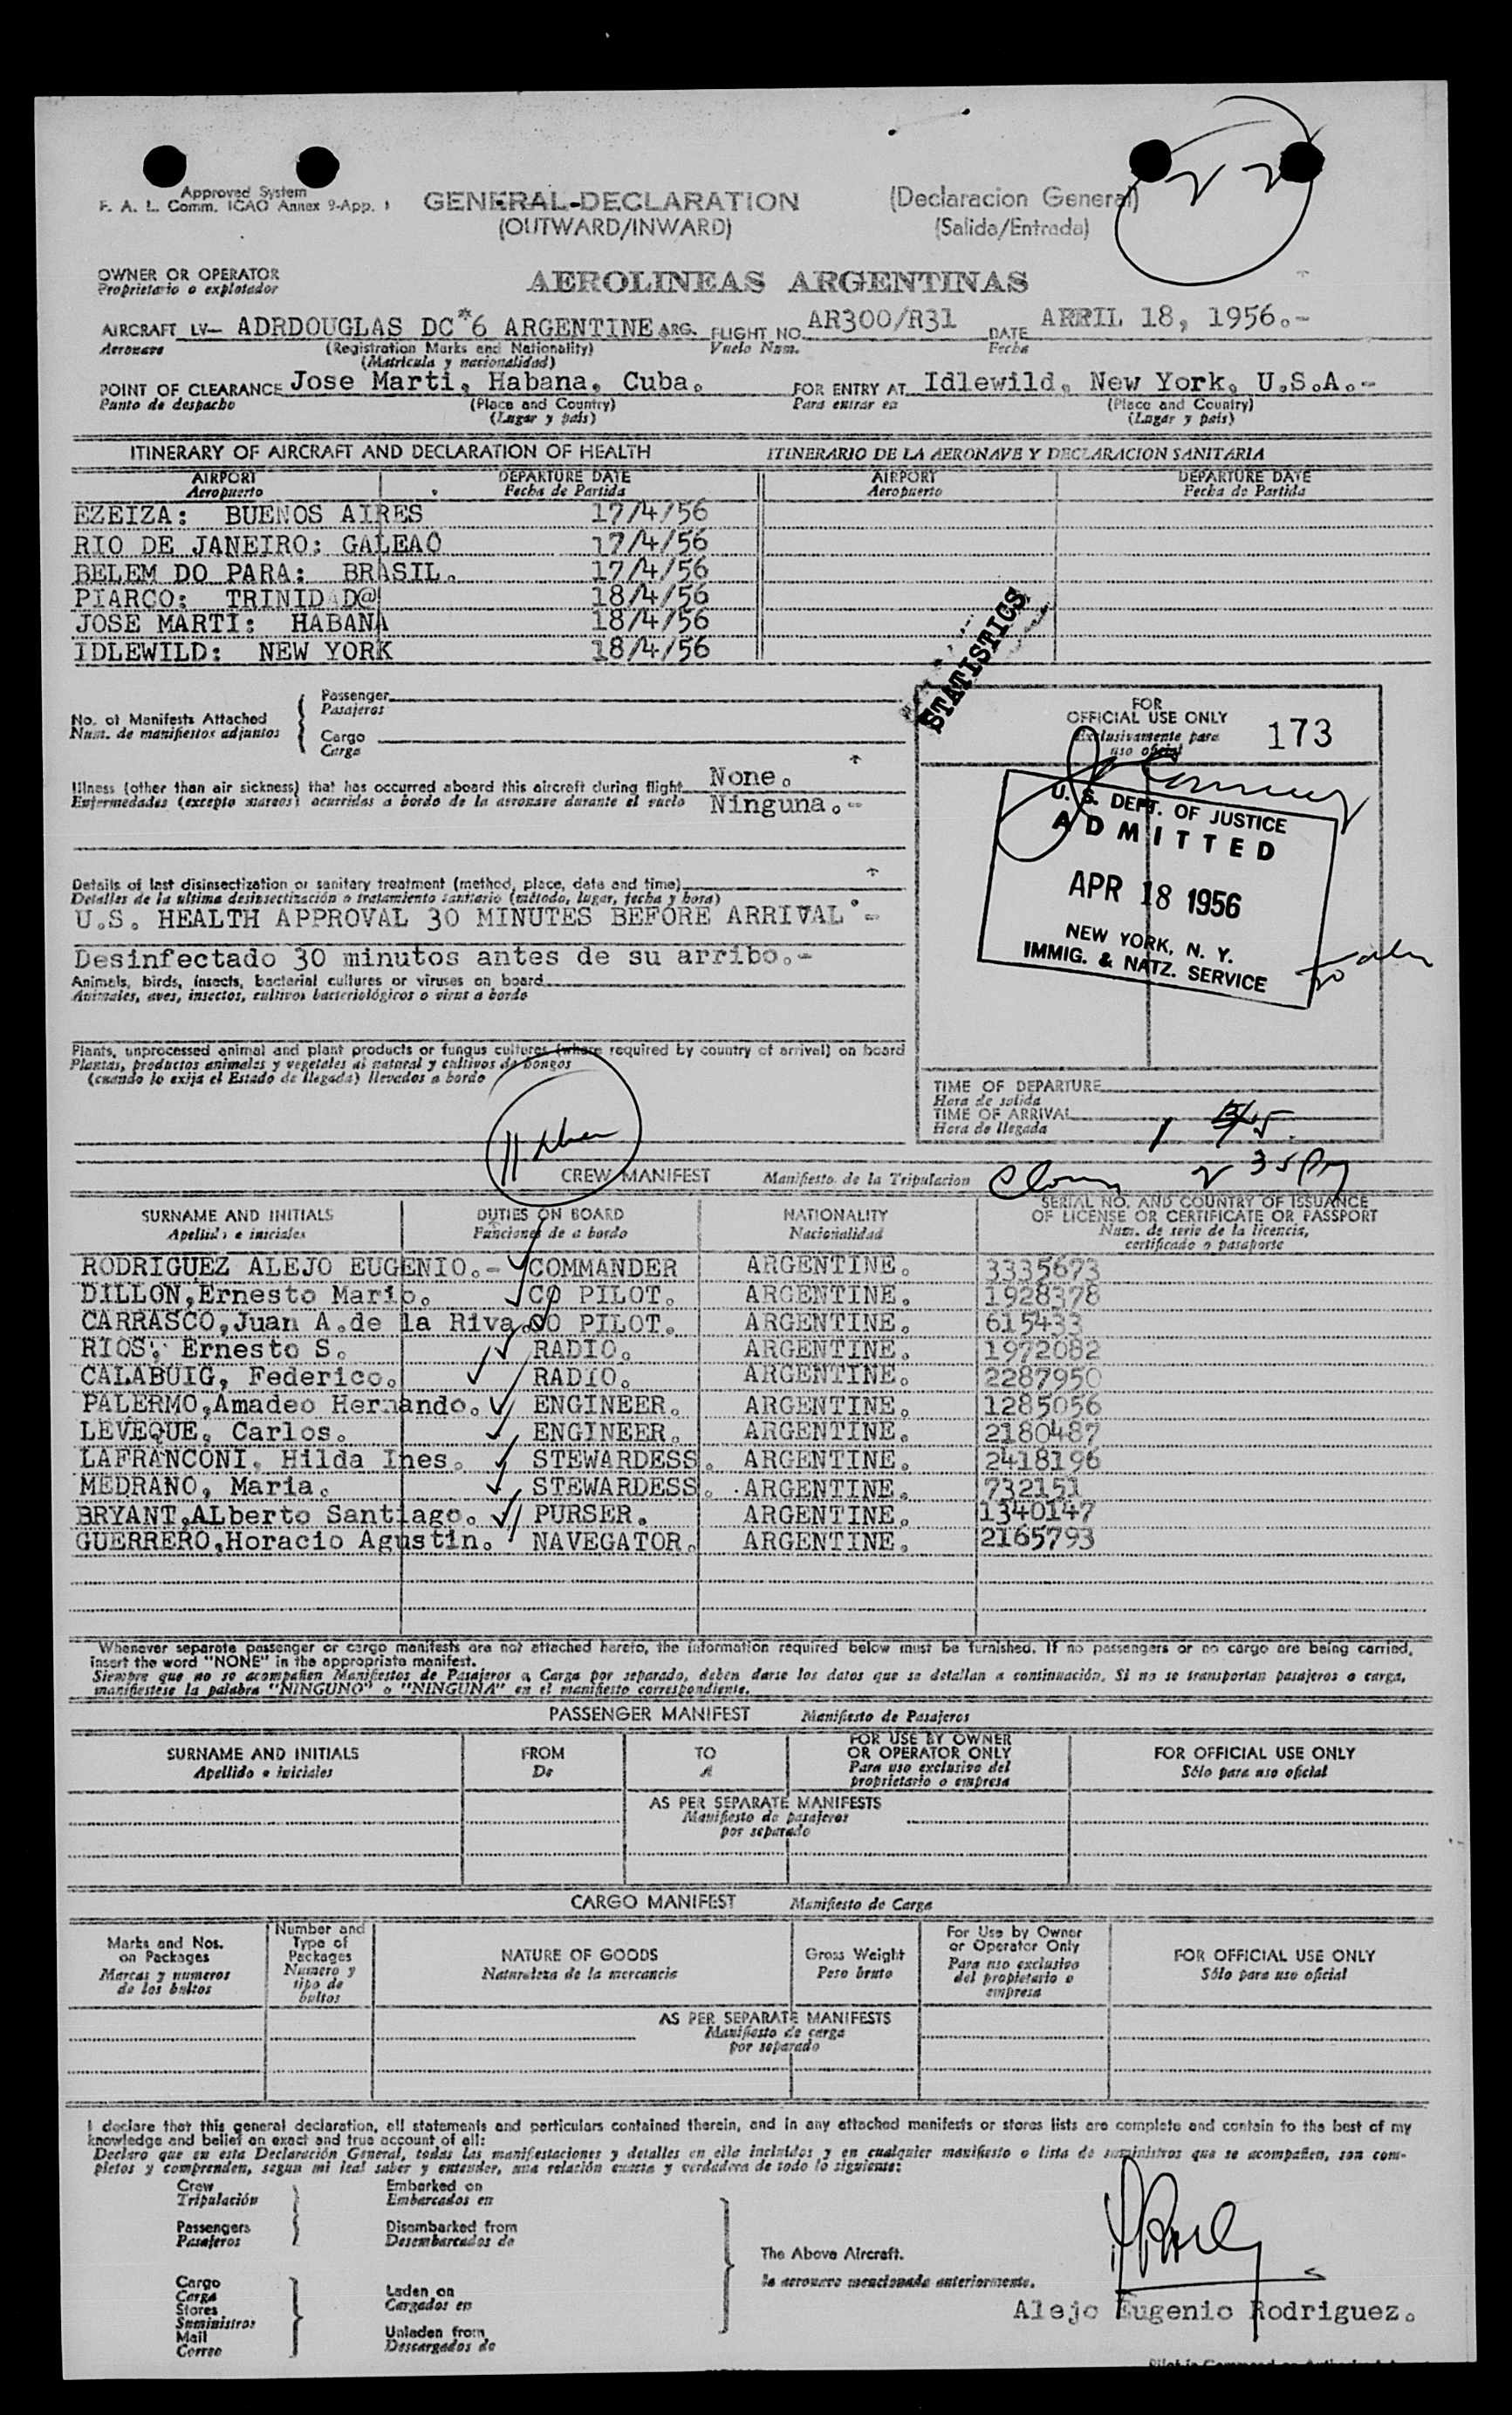 22
Approved System
F. A. L. Comm. ICAO Annex 9-App. 1
GENERAL-DECLARATION (Declaracion General)
(OUTWARD/INWARD) (Salida/Entrada)
OWNER OR OPERATOR
Proprietario o explotador
AEROLINEAS ARGENTINAS
AIRCRAFT LV- ADRDOUGLAS DC*6 ARGENTINE ARG. FLIGHT NO. AR300/R31 DATE APRIL 18, 1956.-
Aeronave (Registration Marks and Nationality) Vuelo Num. Fecha
(Matricula y nacionalidad)
POINT OF CLEARANCE Jose Marti, Habana, Cuba. FOR ENTRY AT Idlewild, New York, U.S.A.-
Punto de despacho (Place and Country) Para entrar en (Place and Country)
(Lugar y pais) (Lugar y pais)
ITINERARY OF AIRCRAFT AND DECLARATION OF HEALTH ITINERARIO DE LA AERONAVE Y DECLARACION SANITARIA
AIRPORT DEPARTURE DATE AIRPORT DEPARTURE DATE
Aeropuerto Fecha de Partida Aeropuerto Fecha de Partida
EZEIZA: BUENOS AIRES 17/4/56
RIO DE JANEIRO: GALEAO 17/4/56
BELEM DO PARA: BRASIL. 17/4/56
PIARCO: TRINIDAD@ 18/4/56
JOSE MARTI: HABANA 18/4/56
IDLEWILD: NEW YORK 18/4/56
STATISTICS
No. of Manifests Attached
Num. de manifiestos adjuntos
Passenger
Pasajeros
Cargo
Carga
FOR
OFFICIAL USE ONLY
Exclusivamente para
uso oficial
173
Illness (other than air sickness) that has occurred aboard this aircraft during flight None.
Enfermedades (excepto mareos) ocurridas a bordo de la aeronave durante el vuelo Ninguna.-
U. S. DEPT. OF JUSTICE
ADMITTED
APR 18 1956
NEW YORK, N. Y.
IMMIG. & NATZ. SERVICE
Details of last disinsectization or sanitary treatment (method, place, date and time)
Detalles de la ultima desinsectización o tratamiento sanitario (método, lugar, fecha y hora)
U.S. HEALTH APPROVAL 30 MINUTES BEFORE ARRIVAL.-
Desinfectado 30 minutos antes de su arribo.-
Animals, birds, insects, bacterial cultures or viruses on board
Animales, aves, insectos, cultivos bacteriológicos o virus a bordo
Plants, unprocessed animal and plant products or fungus cultures (where required by country of arrival) on board
Plantas, productos animales y vegetales al natural y cultivos de hongos
(cuando lo exija el Estado de llegada) llevados a bordo
TIME OF DEPARTURE
Hora de salida
TIME OF ARRIVAL
Hora de llegada
2 35 PM
CREW MANIFEST Manifiesto de la Tripulacion
SURNAME AND INITIALS DUTIES ON BOARD NATIONALITY SERIAL NO. AND COUNTRY OF ISSUANCE
OF LICENSE OR CERTIFICATE OR PASSPORT
Apellido e iniciales Funciones de a bordo Nacionalidad Num. de serie de la licencia,
certificado o pasaporte
RODRIGUEZ ALEJO EUGENIO.- COMMANDER ARGENTINE. 3335673
DILLON,Ernesto Mario. CO PILOT. ARGENTINE. 1928378
CARRASCO,Juan A.de la Riva.CO PILOT. ARGENTINE. 615433
RIOS, Ernesto S. RADIO. ARGENTINE. 1972082
CALABUIG, Federico. RADIO. ARGENTINE. 2287950
PALERMO,Amadeo Hernando. ENGINEER. ARGENTINE. 1285056
LEVEQUE, Carlos. ENGINEER. ARGENTINE. 2180487
LAFRANCONI, Hilda Ines. STEWARDESS. ARGENTINE. 2418196
MEDRANO, Maria. STEWARDESS. ARGENTINE. 732151
BRYANT,ALberto Santiago. PURSER. ARGENTINE. 1340147
GUERRERO,Horacio Agustin. NAVEGATOR. ARGENTINE. 2165793
Whenever separate passenger or cargo manifests are not attached hereto, the information required below must be furnished. If no passengers or no cargo are being carried,
insert the word "NONE" in the appropriate manifest.
Siempre que no se acompañen Manifiestos de Pasajeros o Carga por separado, deben darse los datos que se detallan a continuación. Si no se transportan pasajeros o carga,
manifiestese la palabra "NINGUNO" o "NINGUNA" en el manifiesto correspondiente.
PASSENGER MANIFEST Manifiesto de Pasajeros
SURNAME AND INITIALS FROM TO FOR USE BY OWNER
OR OPERATOR ONLY FOR OFFICIAL USE ONLY
Apellido e iniciales De A Para uso exclusivo del
proprietario o empresa Sólo para uso oficial
AS PER SEPARATE MANIFESTS
Manifiesto de pasajeros
por separado
CARGO MANIFEST Manifiesto de Carga
Marks and Nos.
on Packages
Marcas y numeros
de los bultos
Number and
Type of
Packages
Numero y
tipo de
bultos
NATURE OF GOODS
Naturaleza de la mercancia
Gross Weight
Peso bruto
For Use by Owner
or Operator Only
Para uso exclusivo
del propietario o
empresa
FOR OFFICIAL USE ONLY
Sólo para uso oficial
AS PER SEPARATE MANIFESTS
Manifiesto de carga
por separado
I declare that this general declaration, all statements and particulars contained therein, and in any attached manifests or stores lists are complete and contain to the best of my
knowledge and belief an exact and true account of all:
Declaro que en esta Declaración General, todas las manifestaciones y detalles en ella incluidos y en cualquier manifiesto o lista de suministros que se acompañen, son com-
pletos y comprenden, segun mi leal saber y entender, una relación exacta y verdadera de todo lo siguiente:
Crew
Tripulación
Passengers
Pasajeros
Embarked on
Embarcados en
Disembarked from
Desembarcados de
Cargo
Carga
Stores
Suministros
Mail
Correo
Laden on
Cargados en
Unladen from
Descargados de
The Above Aircraft.
la aeronave mencionada anteriormente.
Alejo Eugenio Rodriguez.